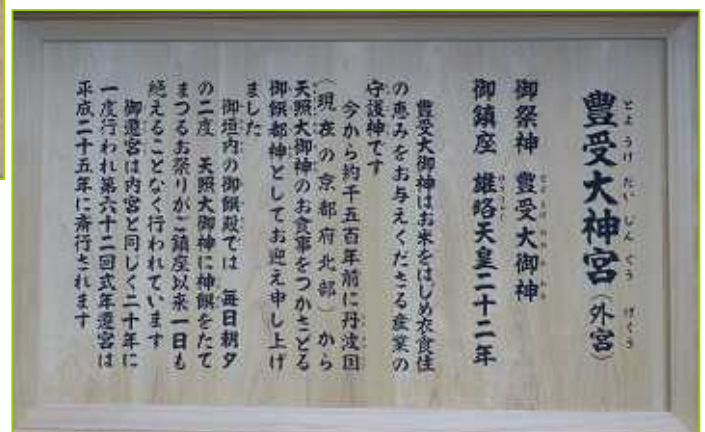 豊受大神宮(外宮)
とようけだいじんぐう げくう
御祭神 豊受大御神
とようけのおおみかみ
御鎮座 雄略天皇二十二年
豊受大御神はお米をはじめ衣食住
の恵みをお与えくださる産業の
守護神です
今から約千五百年前に丹波国
(現在の京都府北部)から
天照大御神のお食事をつかさどる
御饌都神としてお迎え申し上げ
ました
御垣内の御饌殿では 毎日朝夕
の二度 天照大御神に神饌をたて
まつるお祭りがご鎮座以来一日も
絶えることなく行われています
御遷宮は内宮と同じく二十年に
一度行われ第六十二回式年遷宮は
平成二十五年に斎行されます